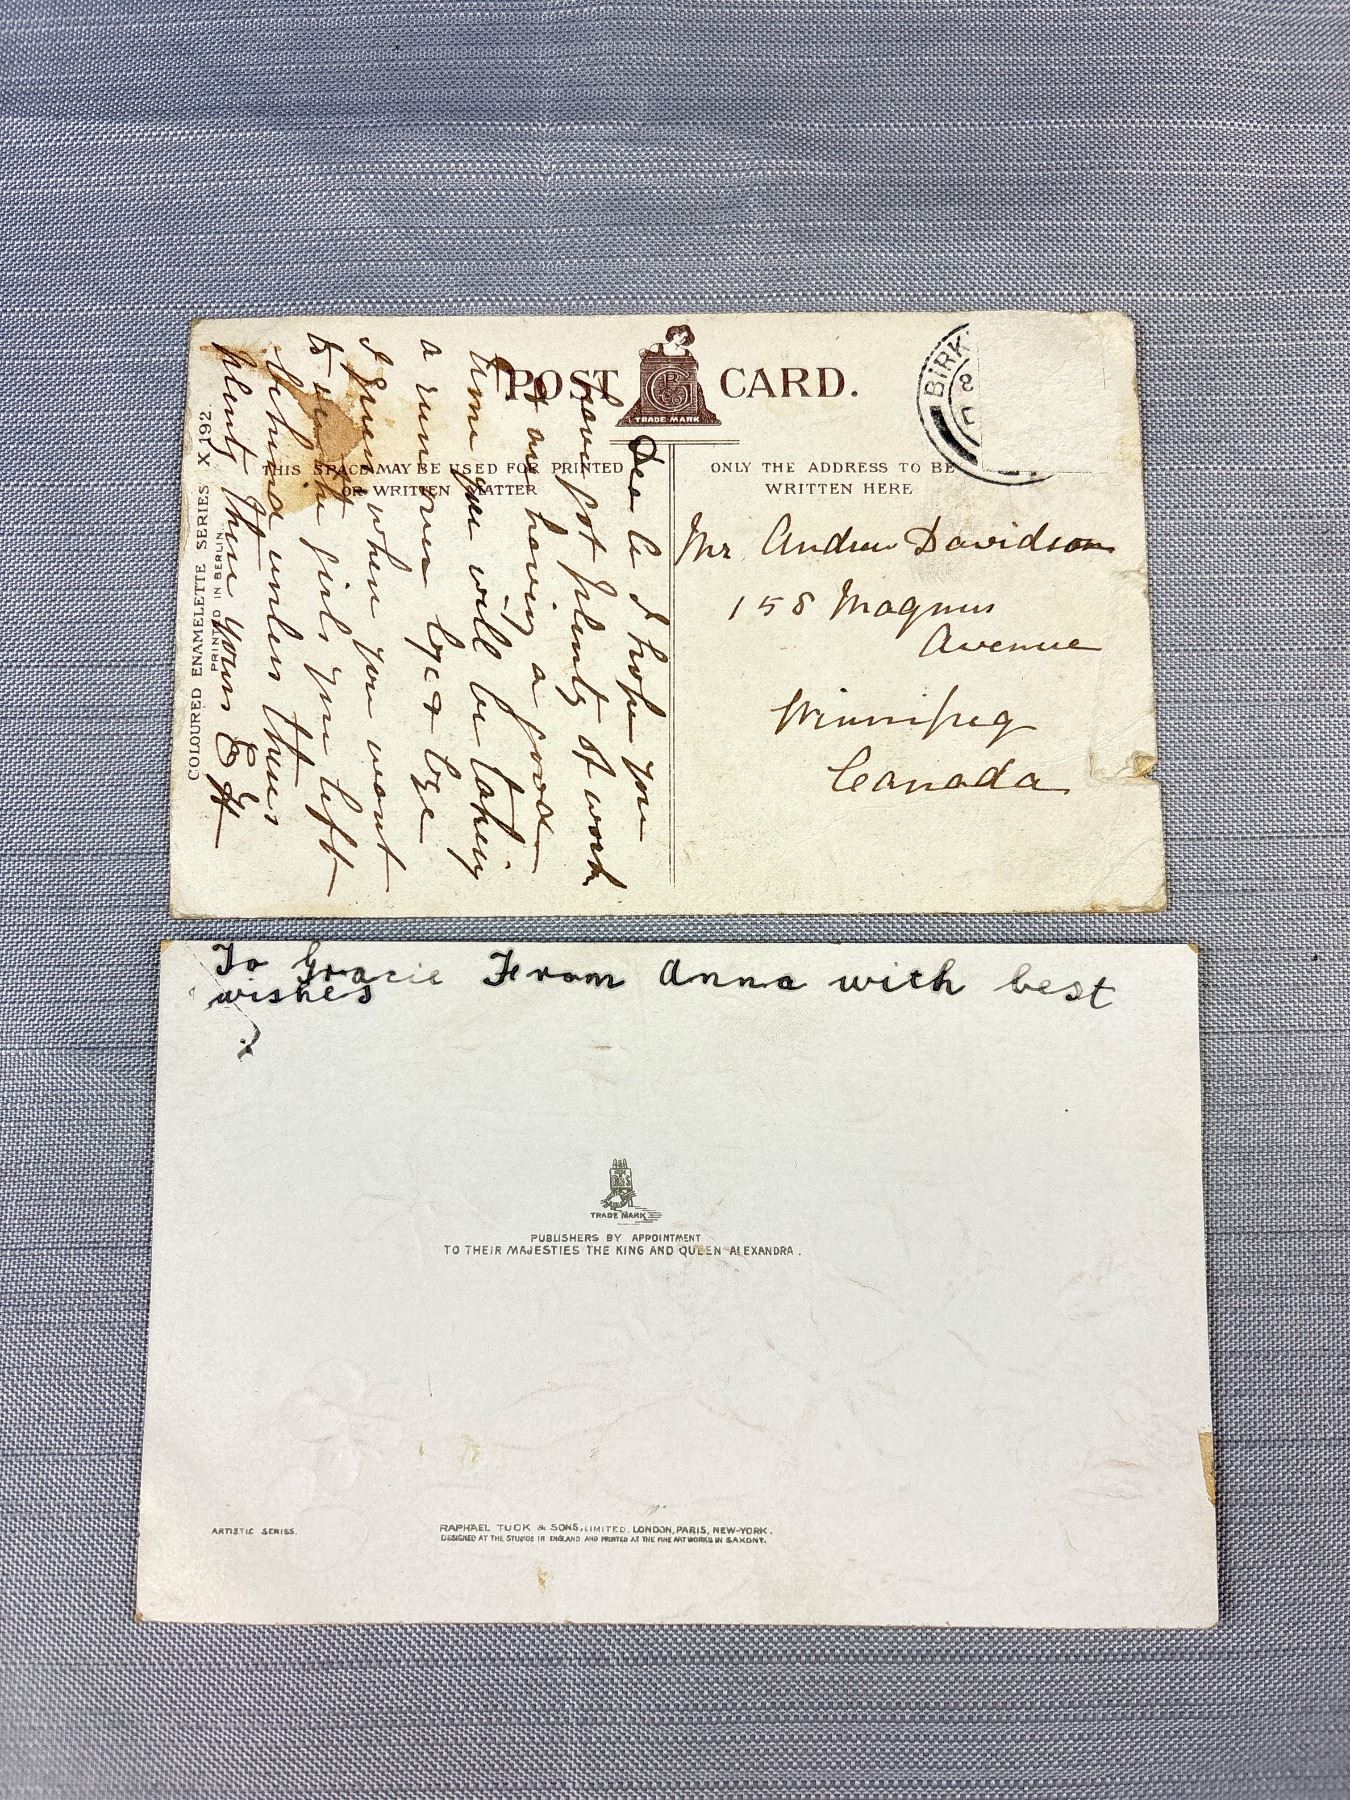 POST CARD.
TRADE MARK
THIS SPACE MAY BE USED FOR PRINTED
OR WRITTEN MATTER
ONLY THE ADDRESS TO BE
WRITTEN HERE
BIRK
COLOURED ENAMELETTE SERIES X 192.
PRINTED IN BERLIN.
Dear A I hope you
have got plenty of work
& are having a good
time you will be taking
a run over bye & bye
I when you want
to see the girls you left
behind unless theres
plenty there yours E H
Mr Andrew Davidson
158 Magnus
Avenue
Winnipeg
Canada
To Gracie From Anna with best
wishes
TRADE MARK
PUBLISHERS BY APPOINTMENT
TO THEIR MAJESTIES THE KING AND QUEEN ALEXANDRA.
ARTISTIC SERIES.
RAPHAEL TUCK & SONS, LIMITED. LONDON, PARIS, NEW-YORK.
DESIGNED AT THE STUDIOS IN ENGLAND AND PRINTED AT THE FINE ART WORKS IN SAXONY.